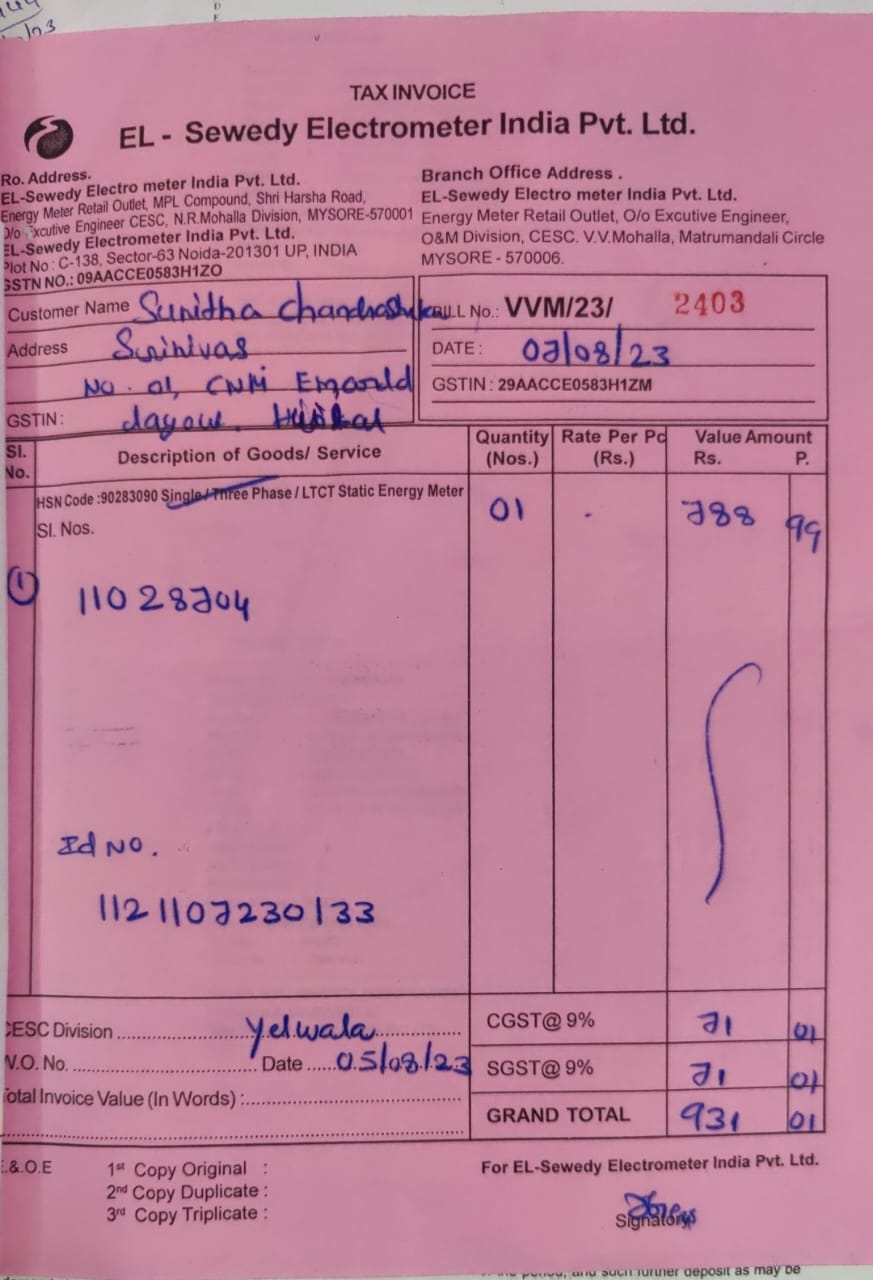 TAX INVOICE
EL - Sewedy Electrometer India Pvt. Ltd.
Ro. Address.
EL-Sewedy Electro meter India Pvt. Ltd.
Energy Meter Retail Outlet, MPL Compound, Shri Harsha Road,
D/o Excutive Engineer CESC, N.R.Mohalla Division, MYSORE-570001
EL-Sewedy Electrometer India Pvt. Ltd.
Plot No : C-138, Sector-63 Noida-201301 UP, INDIA
GSTN NO.: 09AACCE0583H1ZO
Branch Office Address .
EL-Sewedy Electro meter India Pvt. Ltd.
Energy Meter Retail Outlet, O/o Excutive Engineer,
O&M Division, CESC. V.V.Mohalla, Matrumandali Circle
MYSORE - 570006.
Customer Name Sunitha Chandrashekar
Address Srinivas
No. 01, CNM
GSTIN :
BILL No.: VVM/23/ 2403
DATE : 07/08/23
GSTIN : 29AACCE0583H1ZM
Sl. No. Description of Goods/ Service Quantity (Nos.) Rate Per Pc (Rs.) Value Amount Rs. P.
HSN Code :90283090 Single / Three Phase / LTCT Static Energy Meter 01 - 788 99
Sl. Nos.
1 11028704
Id No.
1121107230133
CESC Division Yelwala
W.O. No. Date 05/08/23
Total Invoice Value (In Words) :
CGST@ 9% 71 01
SGST@ 9% 71 01
GRAND TOTAL 931 01
E.&.O.E
1st Copy Original :
2nd Copy Duplicate :
3rd Copy Triplicate :
For EL-Sewedy Electrometer India Pvt. Ltd.
Signatory
and such further deposit as may be